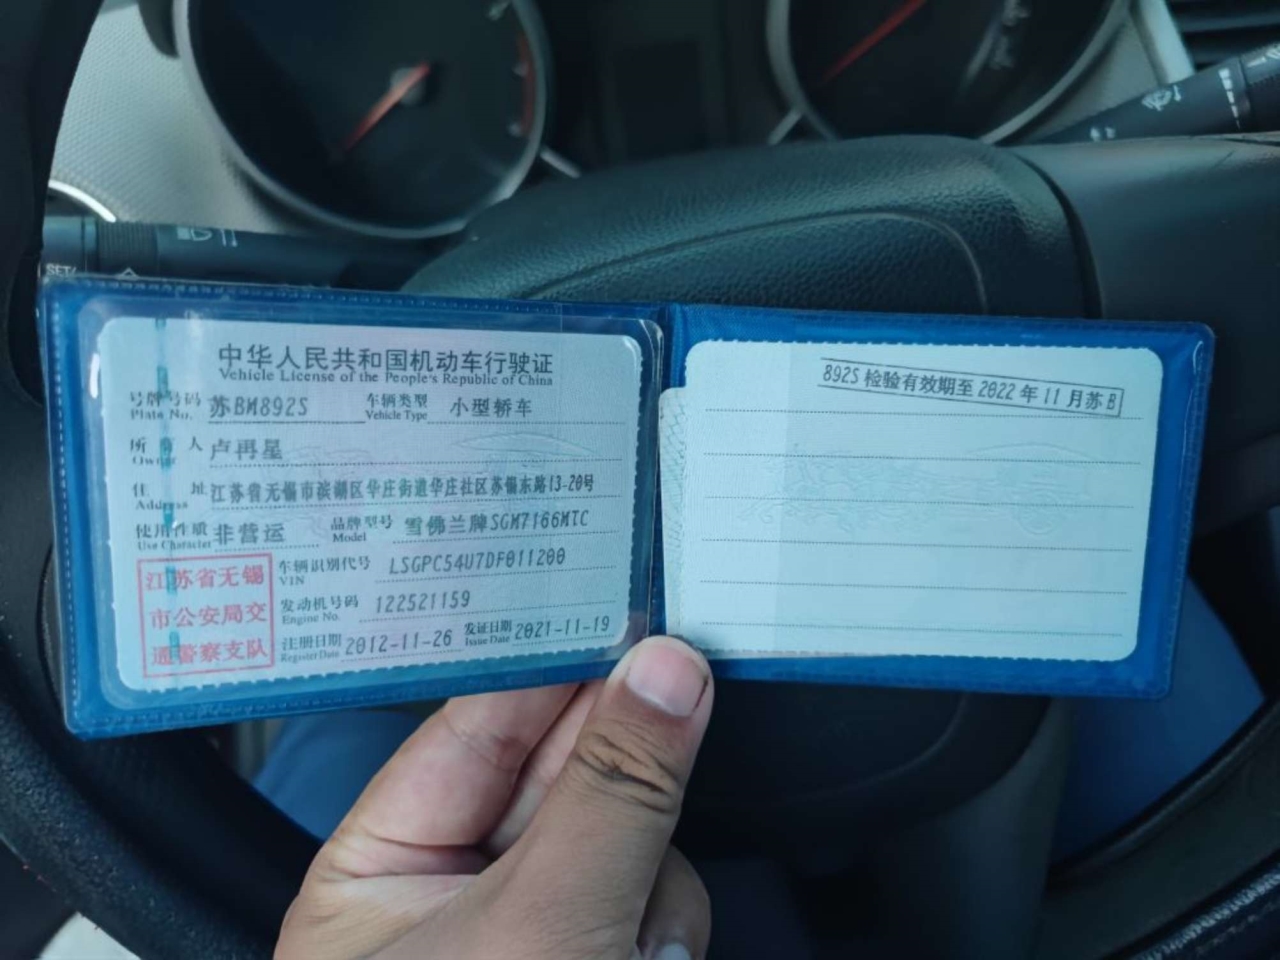 SET/
中华人民共和国机动车行驶证
Vehicle License of the People's Republic of China
号牌号码 苏BM892S 车辆类型 小型轿车
Plate No. Vehicle Type
所有人 卢再星
Owner
住址 江苏省无锡市滨湖区华庄街道华庄社区苏锡东路13-20号
Address
使用性质 非营运 品牌型号 雪佛兰牌SGM7166MTC
Use Character Model
江苏省无锡
市公安局交
通警察支队
车辆识别代号 LSGPC54U7DF011200
VIN
发动机号码 122521159
Engine No.
注册日期 2012-11-26 发证日期 2021-11-19
Register Date Issue Date
892S 检验有效期至 2022 年 11 月苏 B